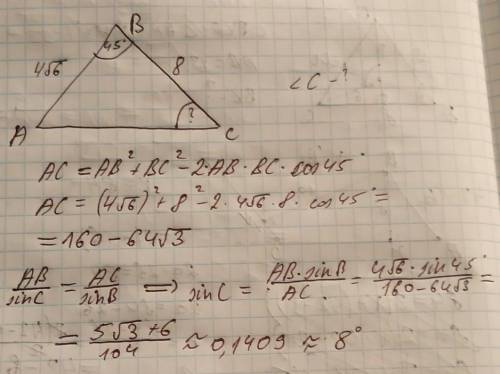 B
45°
4√6
8
∠C - ?
A
?
C
AC = AB² + BC² - 2·AB·BC·cos45°
AC = (4√6)² + 8² - 2·4√6·8·cos45° =
= 160 - 64√3
AB/sinC = AC/sinB ⟹ sinC = AB·sinB/AC = 4√6·sin45°/160-64√3 =
= 5√3+6/104 ≈ 0,1409 ≈ 8°